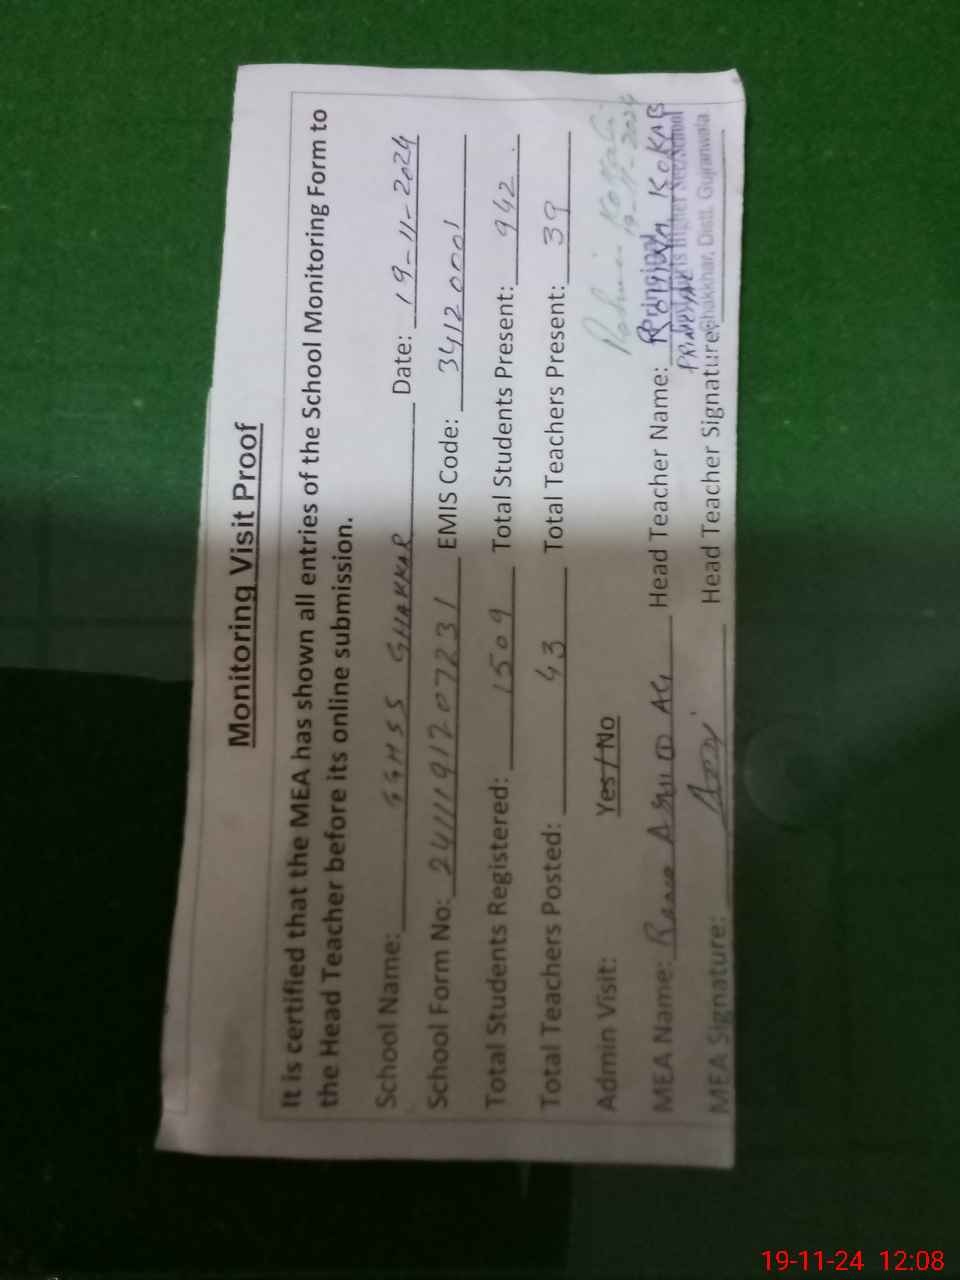 Monitoring Visit Proof
It is certified that the MEA has shown all entries of the School Monitoring Form to
the Head Teacher before its online submission.
School Name: GGHSS GHAKKAR Date: 19-11-2024
School Form No: 24111917207231 EMIS Code: 34120001
Total Students Registered: 1509 Total Students Present: 942
Total Teachers Posted: 43 Total Teachers Present: 39
Admin Visit: Yes/No
19-11-2024
MEA Name: Rana Head Teacher Name: KOKAB
Principal
Higher Sec. School
PRINCIPAL
Ghakkhar, Distt. Gujranwala.
MEA Signature: Head Teacher Signature:
19-11-24 12:08